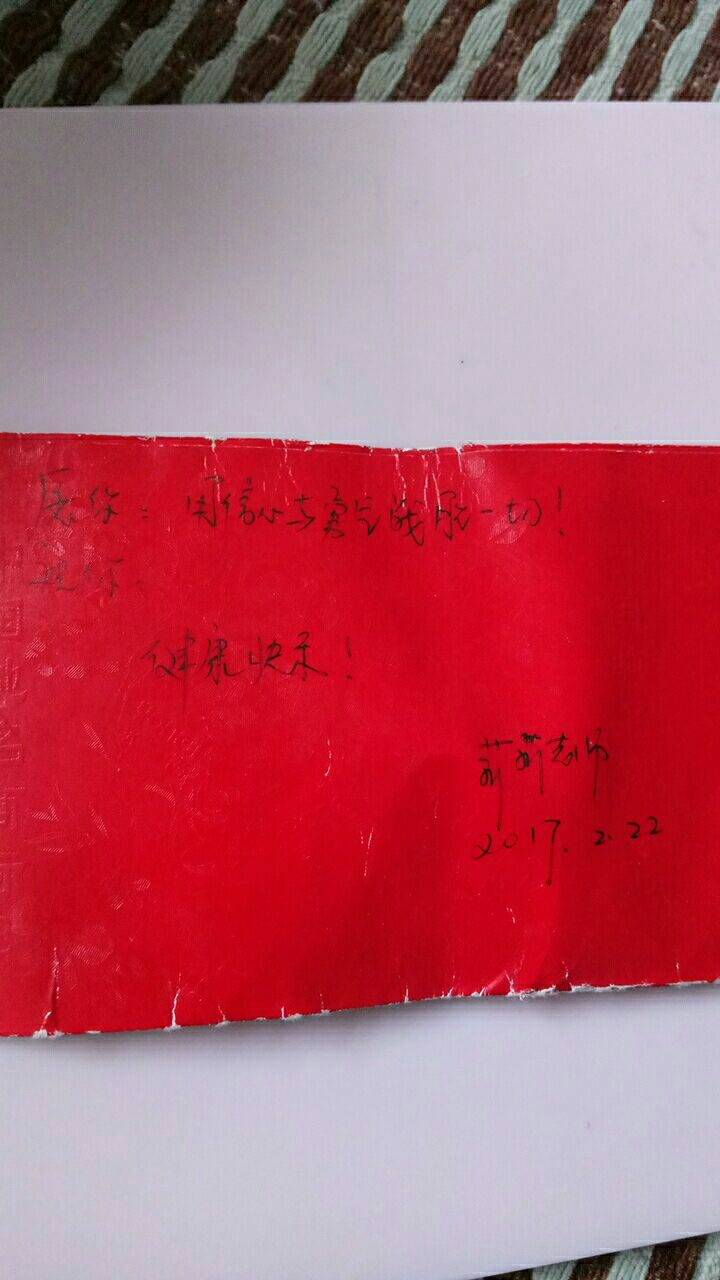 愿你：用信心与勇气战胜一切！
祝你：
健康快乐！
老师
2017.2.22